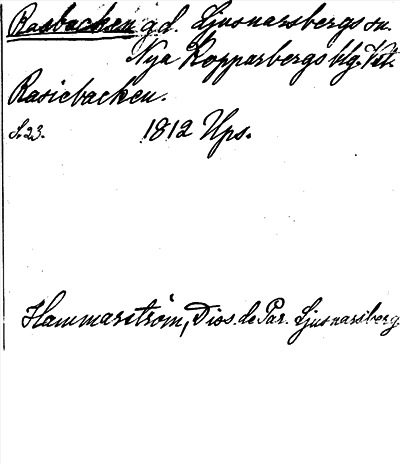 Rasbacken gd. Ljusnarsbergs sn.
Nya Kopparbergs blg. Vstm.
Rasiebacken.
S. 23. 1812 Ups.
Hammarström, Diss. de Par. Ljusnarsberg